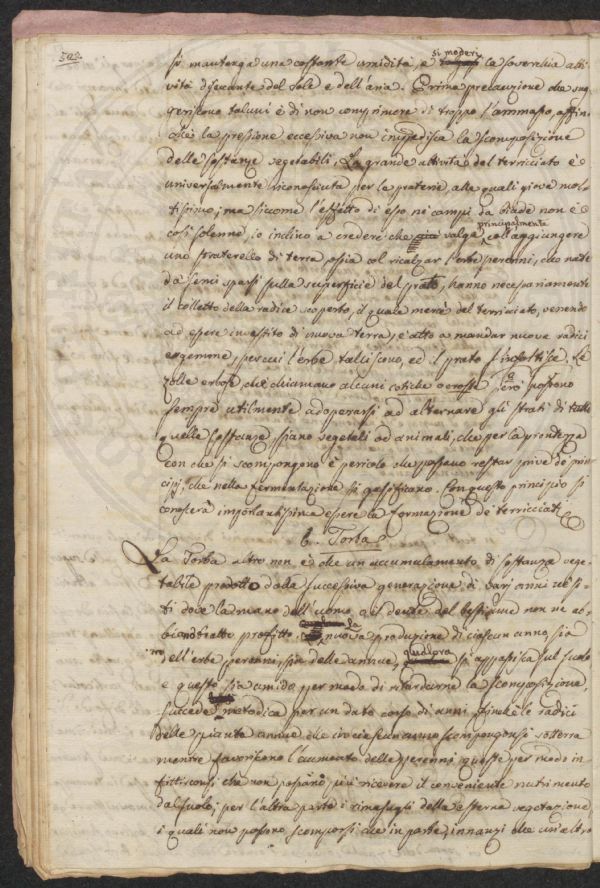 592.
si mantenga una costante umidità e si moderi la soverchia atti-
vità disecante del sole e dell'aria. Prima precauzione che sug-
geriscono taluni è di non comprimere di troppo l'ammasso, affin-
chè la pressione eccessiva non impedisca la scomposizione
delle sostanze vegetabili. La grande attività del terricciato è
universalmente riconosciuta per le praterie, alle quali giova mol-
tissimo; ma siccome l'effetto di esso ne' campi da biade non è
così solenne, io inclino a credere che valga principalmente coll'aggiungere
uno straterello di terra, ossia col rincalzar l'erbe perenni, che nate
da semi sparsi sulla superficie del prato, hanno necessariamente
il colletto della radice scoperto, il quale mercè del terricciato, venendo
ad essere investito di nuova terra, è atto a mandar nuove radici
e gemme, per cui l'erbe talliscono, ed il prato s'infoltisce. Le
zolle erbose che chiamano alcuni cotiche o croste però possono
sempre utilmente adoperarsi ad alternare gli strati di tutte
quelle sostanze, siano vegetali od animali, che per la prontezza
con che si scompongono è pericolo che possano restar prive de' prin-
cipj, che nella fermentazione si gasificano. Con questo principio si
conoscerà importantissima essere la formazione de' terricciati
6. Torba
La Torba altro non è che un accumulamento di sostanza vege-
tabile prodotto dalla successiva generazione di varj anni ne' si-
ti dove la mano dell'uomo o il dente del bestiame non ne ab-
biano tratto profitto. la nuova produzione di ciascun anno, sia
dell'erbe perenni, sia delle annue, qualora si appassisca sul suolo
e questo sia umido per modo di ritardarne la scomposizione,
succede metodica per un dato corso di anni finchè le radici
delle piante annue che ciascun anno scompongonsi sotterra
mentre favoriscono l'aumento delle perenni queste per modo in-
fittiscansi, che non possano più ricevere il conveniente nutrimento
dal suolo; per l'altra parte i rimasugli della esterna vegetazione
i quali non possono scomporsi che in parte, innanzi che un'altro